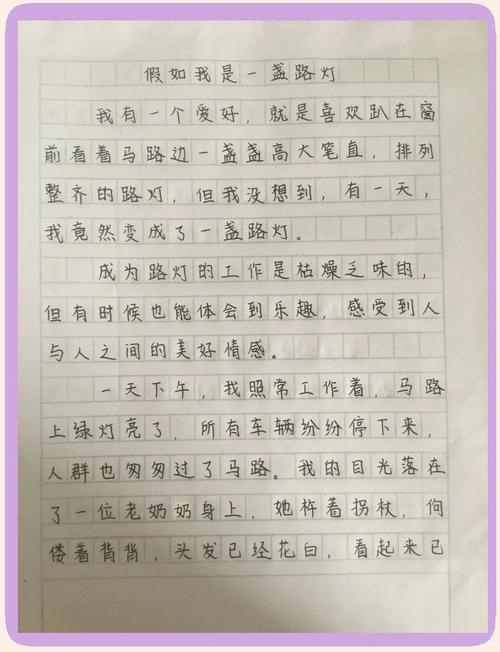 假如我是一盏路灯
我有一个爱好，就是喜欢趴在窗
前看着马路边一盏盏高大笔直，排列
整齐的路灯，但我没想到，有一天，
我竟然变成了一盏路灯。
成为路灯的工作是枯燥乏味的，
但有时候也能体会到乐趣，感受到人
与人之间的美好情感。
一天下午，我照常工作着，马路
上绿灯亮了，所有车辆纷纷停下来，
人群也匆匆过了马路。我的目光落在
了一位老奶奶身上，她杵着拐杖，佝
偻着背背，头发已经花白，看起来已